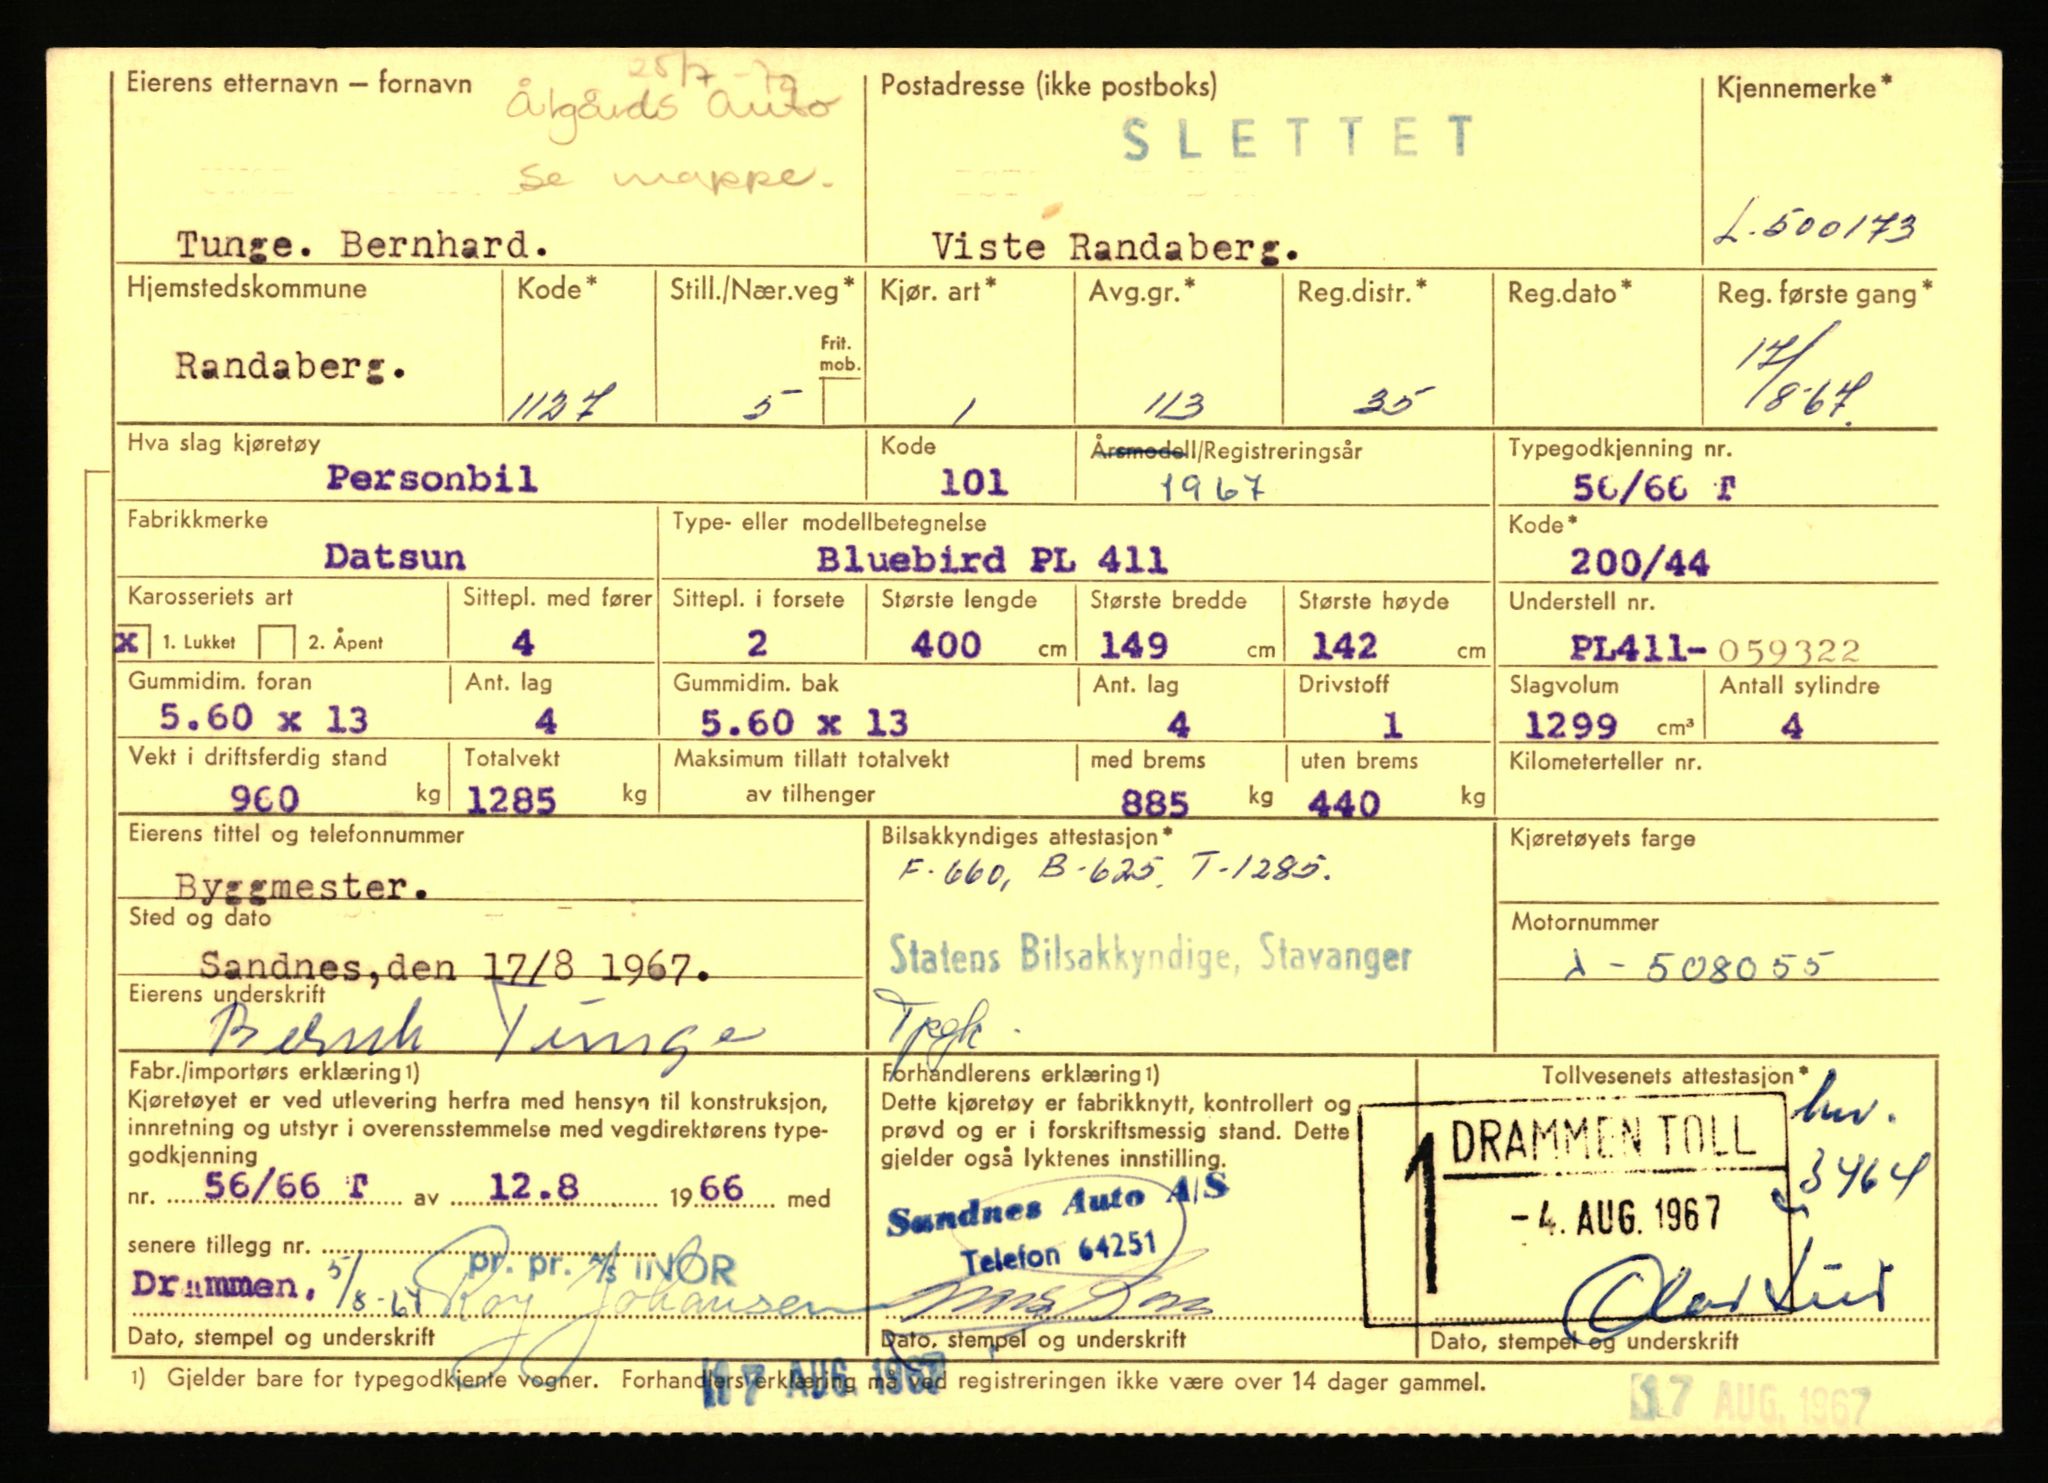 Eierens etternavn – fornavn
25/7 -79
Ålgårds Auto
se mappe.
Tunge. Bernhard.
Postadresse (ikke postboks)
SLETTET
Viste Randaberg.
Kjennemerke*
L-500173
Hjemstedskommune
Randaberg.
Kode*
1127
Still./Nær.veg*
5
Frit. mob.
Kjør. art*
1
Avg.gr.*
113
Reg.distr.*
35
Reg.dato*
Reg. første gang*
17/8-67.
Hva slag kjøretøy
Personbil
Kode
101
Årsmodell/Registreringsår
1967
Typegodkjenning nr.
56/66 T
Fabrikkmerke
Datsun
Type- eller modellbetegnelse
Bluebird PL 411
Kode*
200/44
Karosseriets art
x 1. Lukket 2. Åpent
Sittepl. med fører
4
Sittepl. i forsete
2
Største lengde
400 cm
Største bredde
149 cm
Største høyde
142 cm
Understell nr.
PL411-059322
Gummidim. foran
5.60 x 13
Ant. lag
4
Gummidim. bak
5.60 x 13
Ant. lag
4
Drivstoff
1
Slagvolum
1299 cm³
Antall sylindre
4
Vekt i driftsferdig stand
960 kg
Totalvekt
1285 kg
Maksimum tillatt totalvekt
av tilhenger
med brems
885 kg
uten brems
440 kg
Kilometerteller nr.
Eierens tittel og telefonnummer
Byggmester.
Bilsakkyndiges attestasjon*
F-660, B-625, T-1285.
Statens Bilsakkyndige, Stavanger
Tpgk.
Kjøretøyets farge
Sted og dato
Sandnes, den 17/8 1967.
Motornummer
J-508055
Eierens underskrift
Bernh Tunge
Fabr./importørs erklæring1)
Kjøretøyet er ved utlevering herfra med hensyn til konstruksjon,
innretning og utstyr i overensstemmelse med vegdirektørens type-
godkjenning
nr. 56/66 T av 12.8 1966 med
senere tillegg nr.
pr. pr. A/S INOR
Drammen, 5/8-67 Roy Johansen
Dato, stempel og underskrift
Forhandlerens erklæring1)
Dette kjøretøy er fabrikknytt, kontrollert og
prøvd og er i forskriftsmessig stand. Dette
gjelder også lyktenes innstilling.
Sandnes Auto A/S
Telefon 64251
Dato, stempel og underskrift
Tollvesenets attestasjon*
1 DRAMMEN TOLL
-4. AUG. 1967
3464
Dato, stempel og underskrift
1) Gjelder bare for typegodkjente vogner. Forhandlers erklæring må ved registreringen ikke være over 14 dager gammel.
17 AUG. 1967
17 AUG. 1967